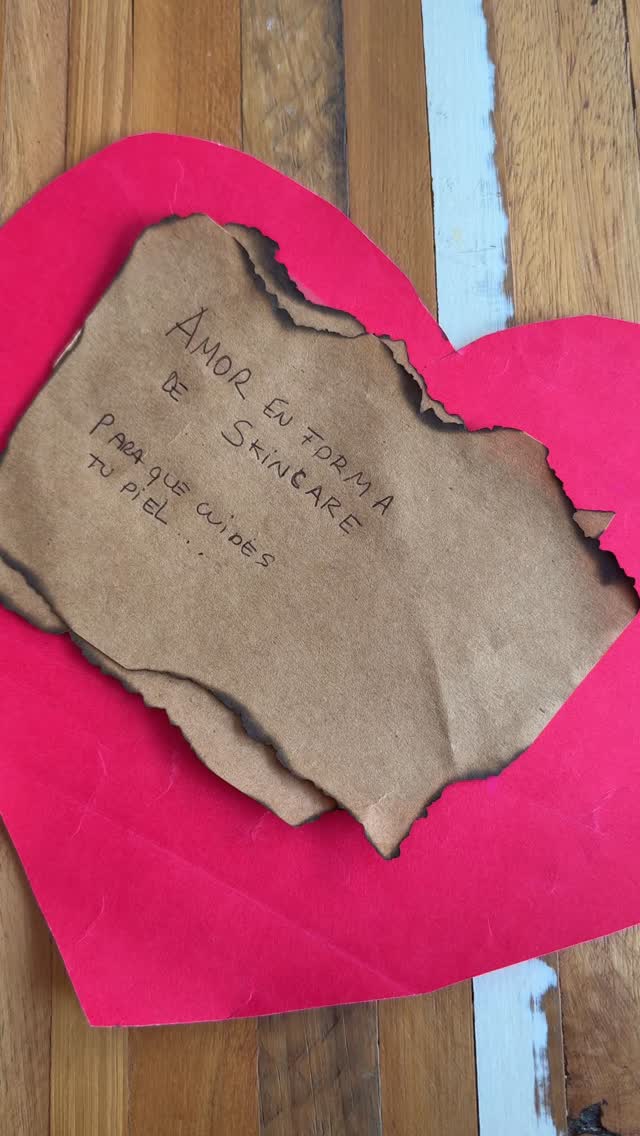 AMOR EN FORMA
DE SKINCARE
PARA QUE CUIDES
TU PIEL....